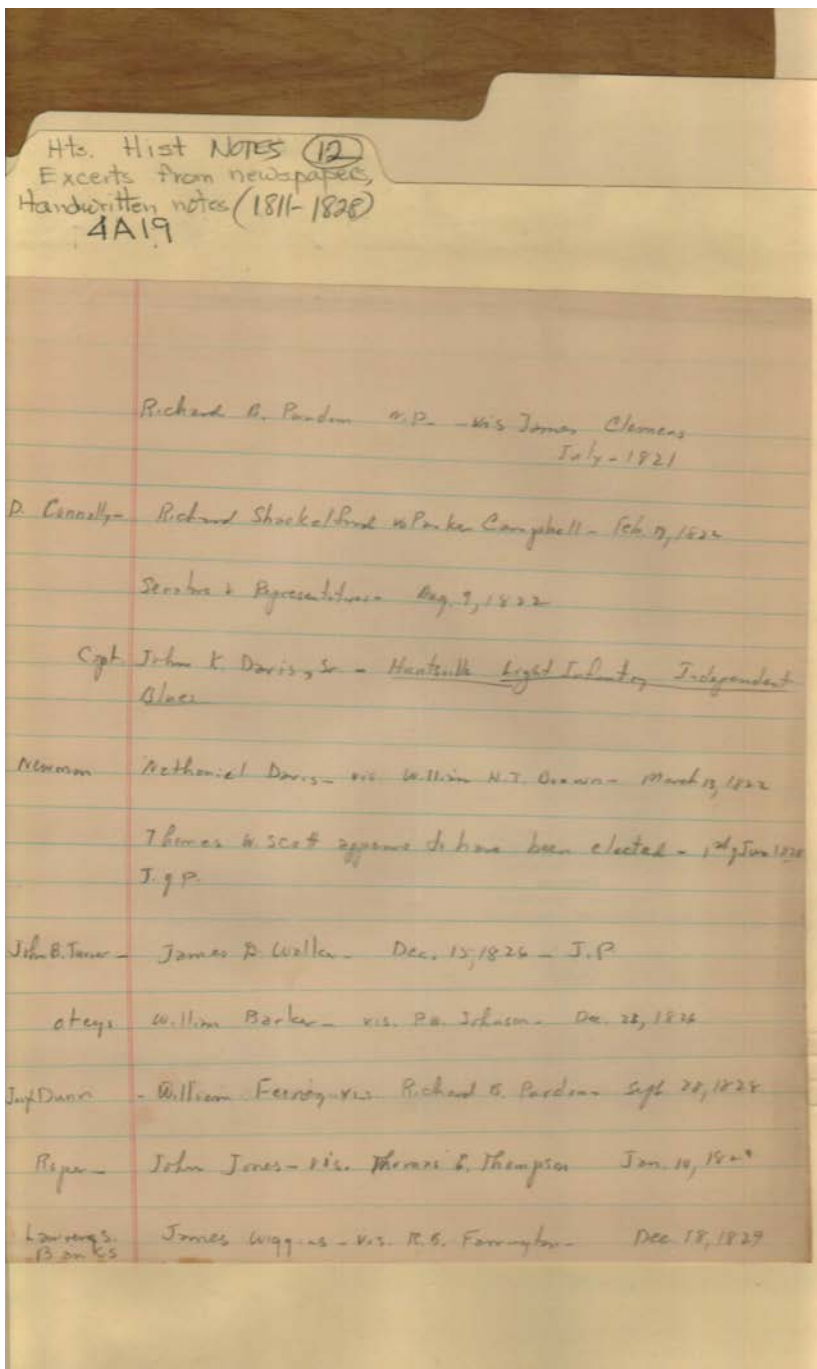 Hts. Hist NOTES (12)
Excerts from newspapers,
Handwritten notes (1811-1828)
4A19
Richard B. Purdom - vis James Clemens
July - 1821
D. Connally - Richard Shackelford vs Parker Campbell - Feb. 1822
Senators & Representatives - Aug. 9, 1822
Capt. John K. Davis, Sr - Huntsville Light Infantry Independent
Blues
Newman Nathaniel Davis - vis William H.T. Brown - March 13, 1822
Thomas W. Scott appears to have been elected - 1st of Jan 1828
J. of P.
John B. Turner - James B Walker - Dec. 15, 1826 - J.P
oteys William Barker - vis. Johnson - Dec. 23, 1826
Dunn - William vis Richard B. Purdom - Sept 28, 1828
Roper - John Jones - vis. Thomas Thompson Jan. 10,
Banks James Wiggins - vis. R.B. Farrington - Dec. 18, 1829